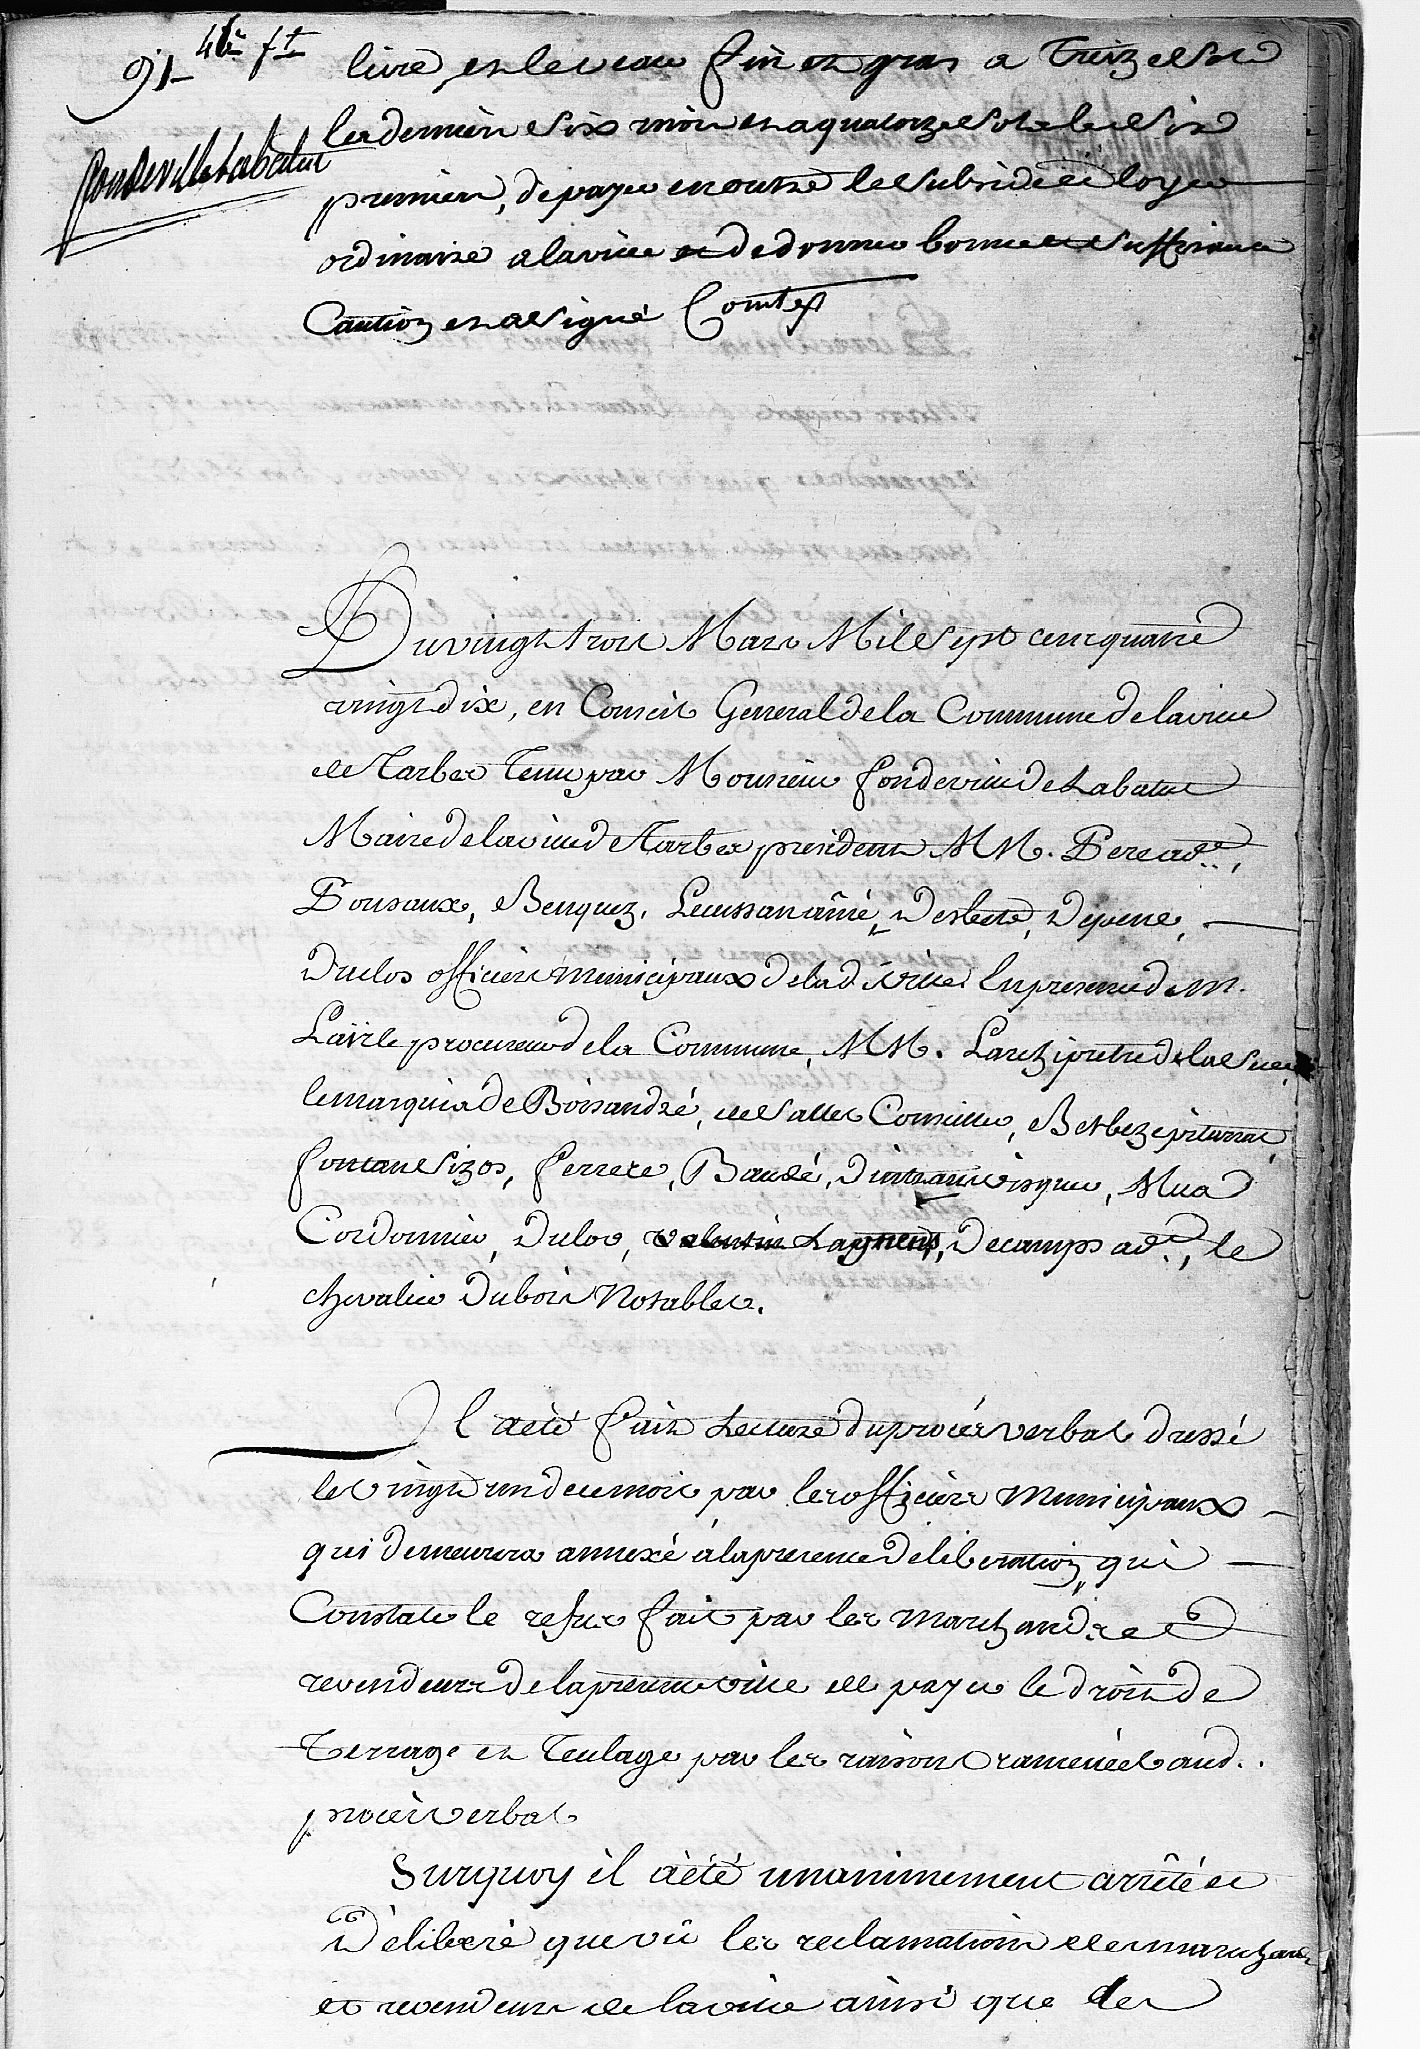 91 4bre ft
fondeville Labatut
livre et le veau fin et gras a Treize sols
les derniers six mois et a quatorze sols les six
premiers, de payer en outre les subsides et loyer
ordinaire a la ville et de donner bonne et suffisante
Caution et a signé Comtes
Du vingt trois Mars Mil Sept cent quatre
vingt dix, en Conseil General de la Commune de la ville
de Tarbes tenu par Monsieur fondeville de Labatut
Maire de la ville de Tarbes president MM. Pere ad.
Dousaux, Benquez, Lecussan ainé, Desbets, Depene,
Duclos officiers municipaux de lad. ville. En presence de M.
procureur de la Commune, MM. L'archiprêtre de la Sede
le marquis de Boisandré, de Salles Conseiller, Berbeze
fontan Sizos, ferrere, Baudé, Dintrans visquer, Mua
Cordonnier, Duclos, valentin Lagnens, Decamps ad., le
chevalier Dubois Notables.
Il a été fait Lecture du procès verbal dressé
le vingt un de ce mois par les officiers Municipaux
qui demeurera annexé à la presente deliberation, qui
Constate le refus fait par les marchands et
revendeurs de la presente ville de payer le droit de
Terrage et Teulage par les raisons ramenées aud.
procès verbal
Surquoy il a été unanimement arrêté et
Déliberé que vû les reclamations des marchands
et revendeurs de la ville ainsi que des